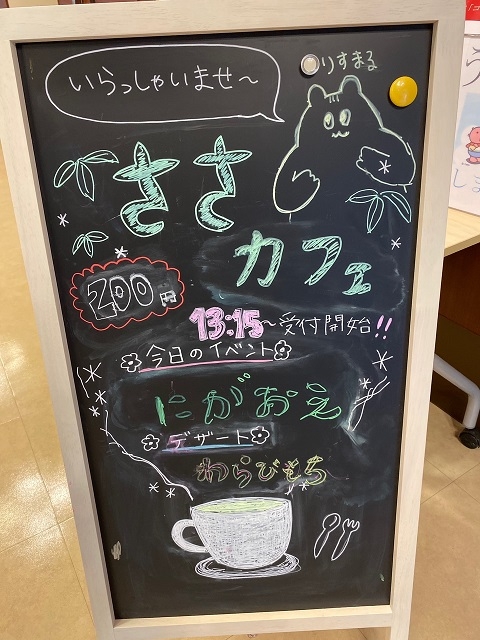 いらっしゃいませ〜
りすまる
ささ
カフェ
200円
13:15〜受付開始!!
今日のイベント
にがおえ
デザート
わらびもち